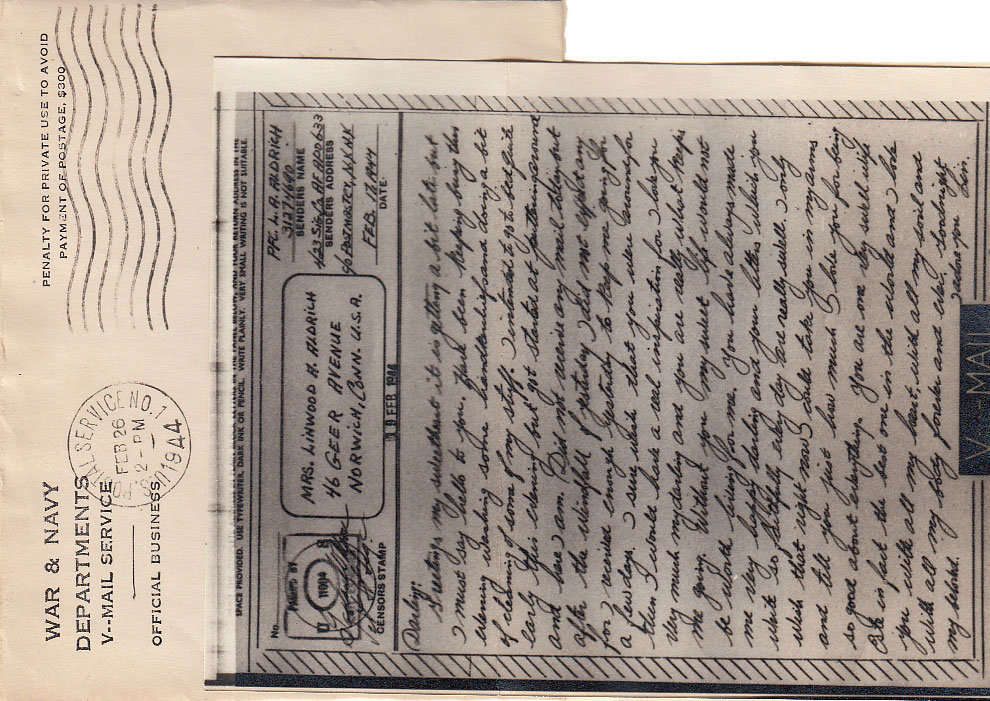 PENALTY FOR PRIVATE USE TO AVOID
PAYMENT OF POSTAGE, $300
POSTAL SERVICE NO. 1
FEB 26
2-PM
1944
WAR & NAVY
DEPARTMENTS
V--MAIL SERVICE
OFFICIAL BUSINESS
SPACE PROVIDED. USE TYPEWRITER, DARK INK OR PENCIL. WRITE PLAINLY. VERY SMALL WRITING IS NOT SUITABLE.
No.
PASSED BY
U S
11004
CENSOR'S STAMP
MRS. LINWOOD A. ALDRICH
46 GEER AVENUE
NORWICH, CONN. U.S.A.
19 FEB 1944
PFC. L. A. ALDRICH
SENDERS NAME
SENDERS ADDRESS
c/o POSTMASTER, N.Y. N.Y.
FEB. 17, 1944
DATE
Darling:
Greetings my sweetheart it is getting a bit late but
I must say hello to you. Have been kept busy this
evening washing some handkerchiefs and doing a bit
of cleaning of some of my stuff. I intended to go to bed quite
early this evening but got started at puttering around
and here I am. Did not receive any mail today but
after the windfall of yesterday I did not expect any
for I received enough yesterday to keep me going for
a few days. I sure wish that you were around for
then I would have a real inspiration for I love you
very much my darling and you are really what keeps
me going. Without you my sweet life would not
be worth living for me. You have always made
me very happy darling and your letters which you
write so faithfully every day are really swell. I only
wish that right now I could take you in my arms
and tell you just how much I love you for being
so good about everything. You are one very swell wife
in fact the best one in the world and I love
you with all my heart, with all my soul and
with all my body forever and ever. Goodnight
my beloved. I adore you
Lin.
V--MAIL